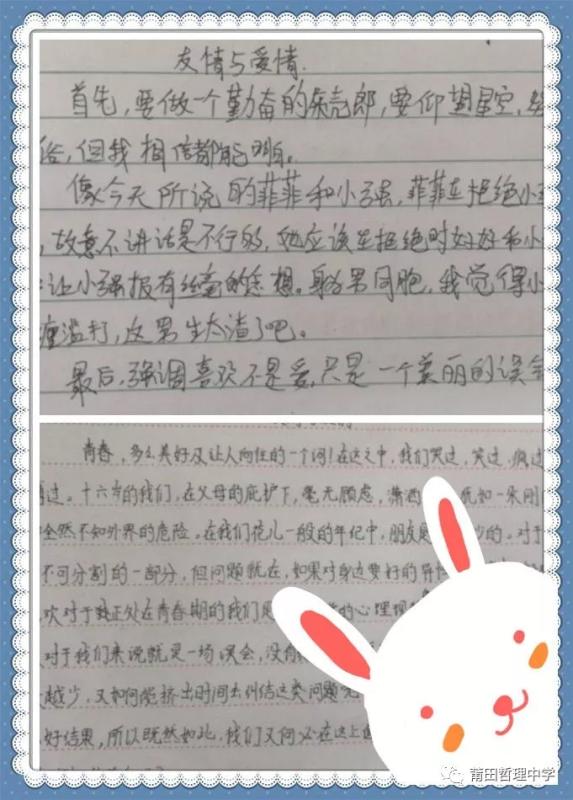 友情与爱情.
首先,要做一个勤奋的朵壳郎,要仰望星空,
俗,但我相信都能明白。
像今天所说的菲菲和小强,菲菲在拒绝小
,故意不讲话是不行的,她应该在拒绝时好好和小
让小强报有丝毫的思想。身为男同胞,我觉得小
滥打,这男生太渣了吧。
最后,强调喜欢不是爱,只是一个美丽的误会
青春,多么美好及让人向往的一个词!在这之中,我们哭过,笑过,疯过
过。十六岁的我们,在父母的庇护下,毫无顾虑,潇洒 犹如一朵刚
全然不知外界的危险。在我们花儿一般的年纪中,朋友是 少的。对于
不可分割的一部分,但问题就在,如果对身边要好的异性
欢对于我正处在青春期的我们是 的心理现
对于我们来说就是一场误会,没有
越少,又如何能挤出时间去纠结这类问题
好结果,所以既然如此,我们又何必在这上
莆田哲理中学